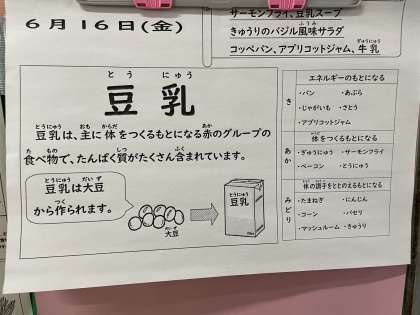 6月16日(金)
サーモンフライ、豆乳スープ
きゅうりのバジル風味サラダ
コッペパン、アプリコットジャム、牛乳
豆乳
豆乳は、主に体をつくるもとになる赤のグループの
食べ物で、たんぱく質がたくさん含まれています。
豆乳は大豆
から作られます。
大豆
豆乳
エネルギーのもとになる
き
・パン ・あぶら
・じゃがいも ・さとう
・アプリコットジャム
体をつくるもとになる
あか
・ぎゅうにゅう ・サーモンフライ
・ベーコン ・とうにゅう
体の調子をととのえるもとになる
みどり
・たまねぎ ・にんじん
・コーン ・パセリ
・マッシュルーム ・きゅうり